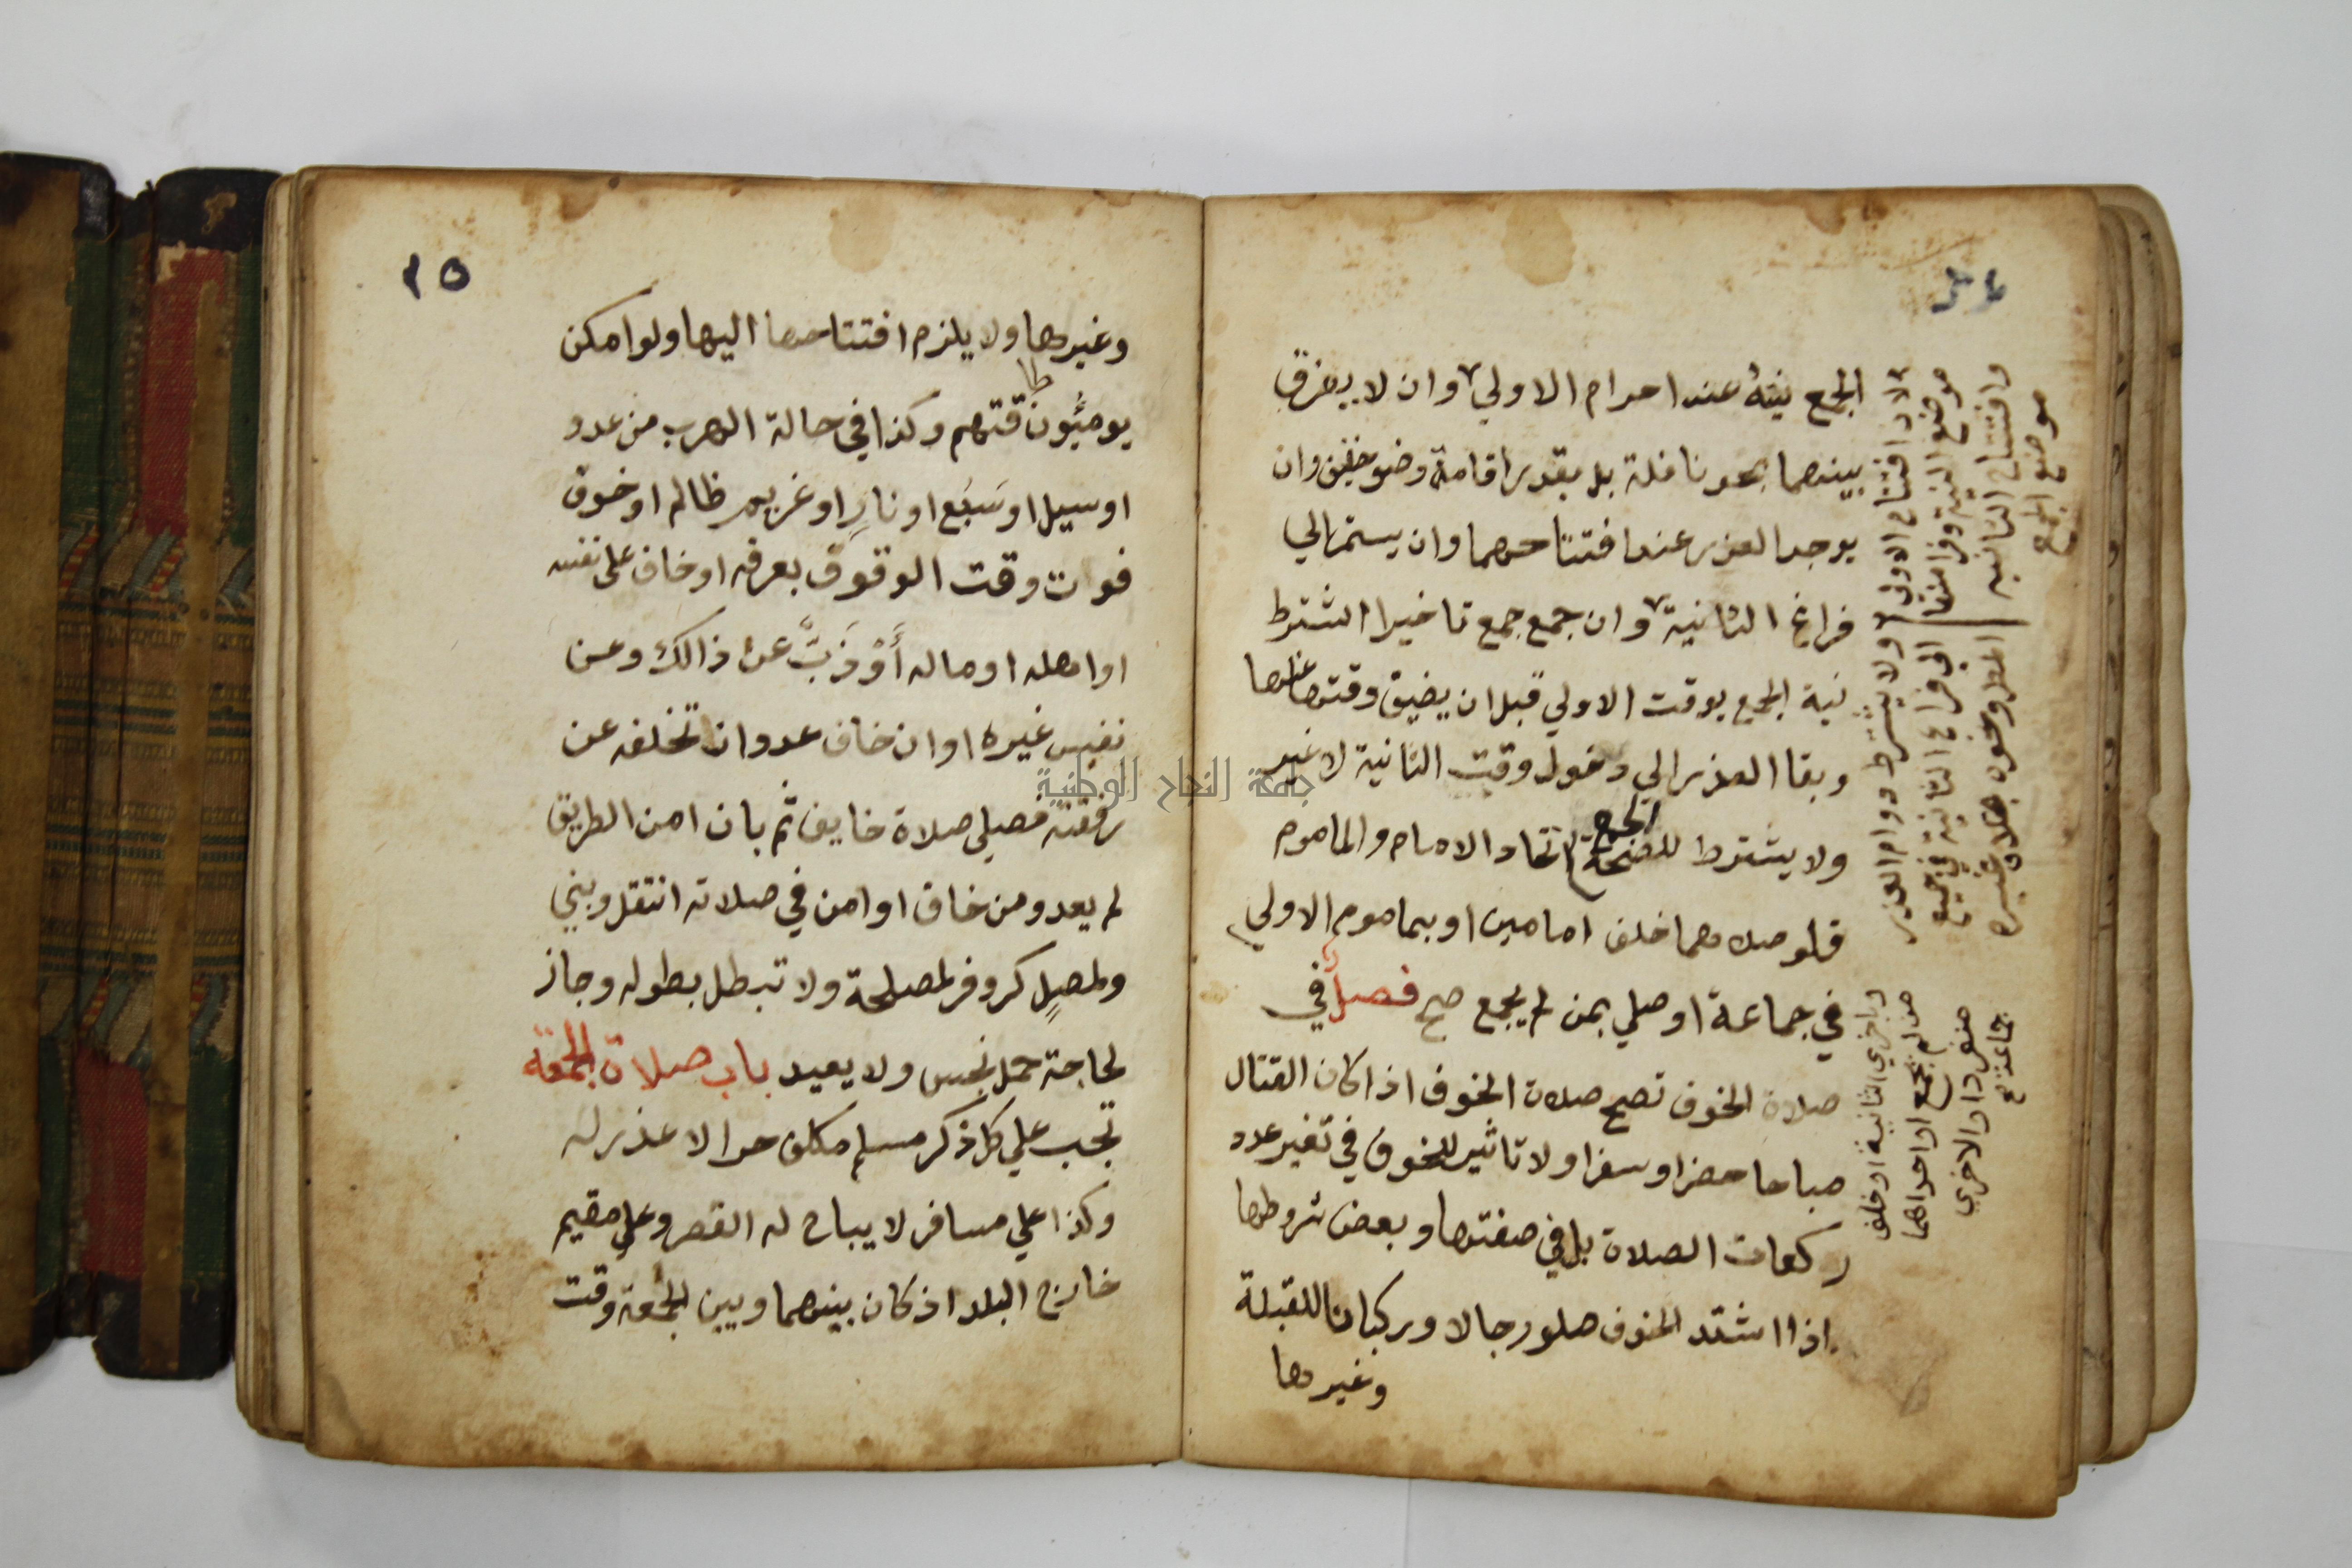 ٢٤
الجمع نيتهُ عند احرام الاولي وان لا يفرق
بينهما بنحو نافلة بل بقدر اقامة وضو خفيف وان
يوجد العذر عند افتتاحهما وان يستمر الي
فراغ الثانية وان جمع جمع تاخيرا اشترط
نية الجمع بوقت الاولي قبل ان يضيق وقتها عنها
وبقا العذر الي دخول وقت الثانية لا غير
ولا يشترط للصحة الجمع اتحاد الامام والماموم
فلو صلاهما خلف امامين او بماموم الاولي
في جماعة او صلي بمن لم يجمع صح فصل في
صلاة الخوف تصح صلاة الخوف اذا كان القتال
مباحا حضرا وسفرا ولا تاثير للخوف في تغير عدد
ركعات الصلاة بل في صفتها وبعض شروطها
اذا اشتد الخوف صلو رجالا وركبانا للقبلة
وغيرها
لان افتتاح الاولى
موضع النية وفراغها
وافتتاح الثانية
موضع الجمع
ولا يشترط دوام العذر
الي فراغ الثانية في جمع
المطر ونحوه بخلاف غيره
وباخري الثانية او خلف
من لم يجمع او احداهما
منفردا والاخري
جماعة
٢٥
وغيرها ولا يلزم افتتاحها اليها ولو امكن
يومئون طاقتهم وكذا في حالة الهرب من عدو
او سيل او سَبُع او نارٍ او غريم ظالم او خوف
فوات وقت الوقوف بعرفه او خاف على نفسه
او اهله او ماله أَوْ ذَبَّ عن ذالك وعن
نفس غيره او ان خاف عدوا ان تخلف عن
رفقته فصلي صلاة خايف ثم بان امن الطريق
لم يعد ومن خاف او امن في صلاته انتقل وبني
ولمصلٍ كر وفر لمصلحة ولا تبطل بطوله وجاز
لحاجة حمل نجس ولا يعيد باب صلاة الجمعة
تجب علي كل ذكر مسلم مكلف حر الا عذر له
وكذا علي مسافر لا يباح له القصر وعلي مقيم
خارج البلد اذ كان بينهما وبين الجمعة وقت
جامعة النجاح الوطنية